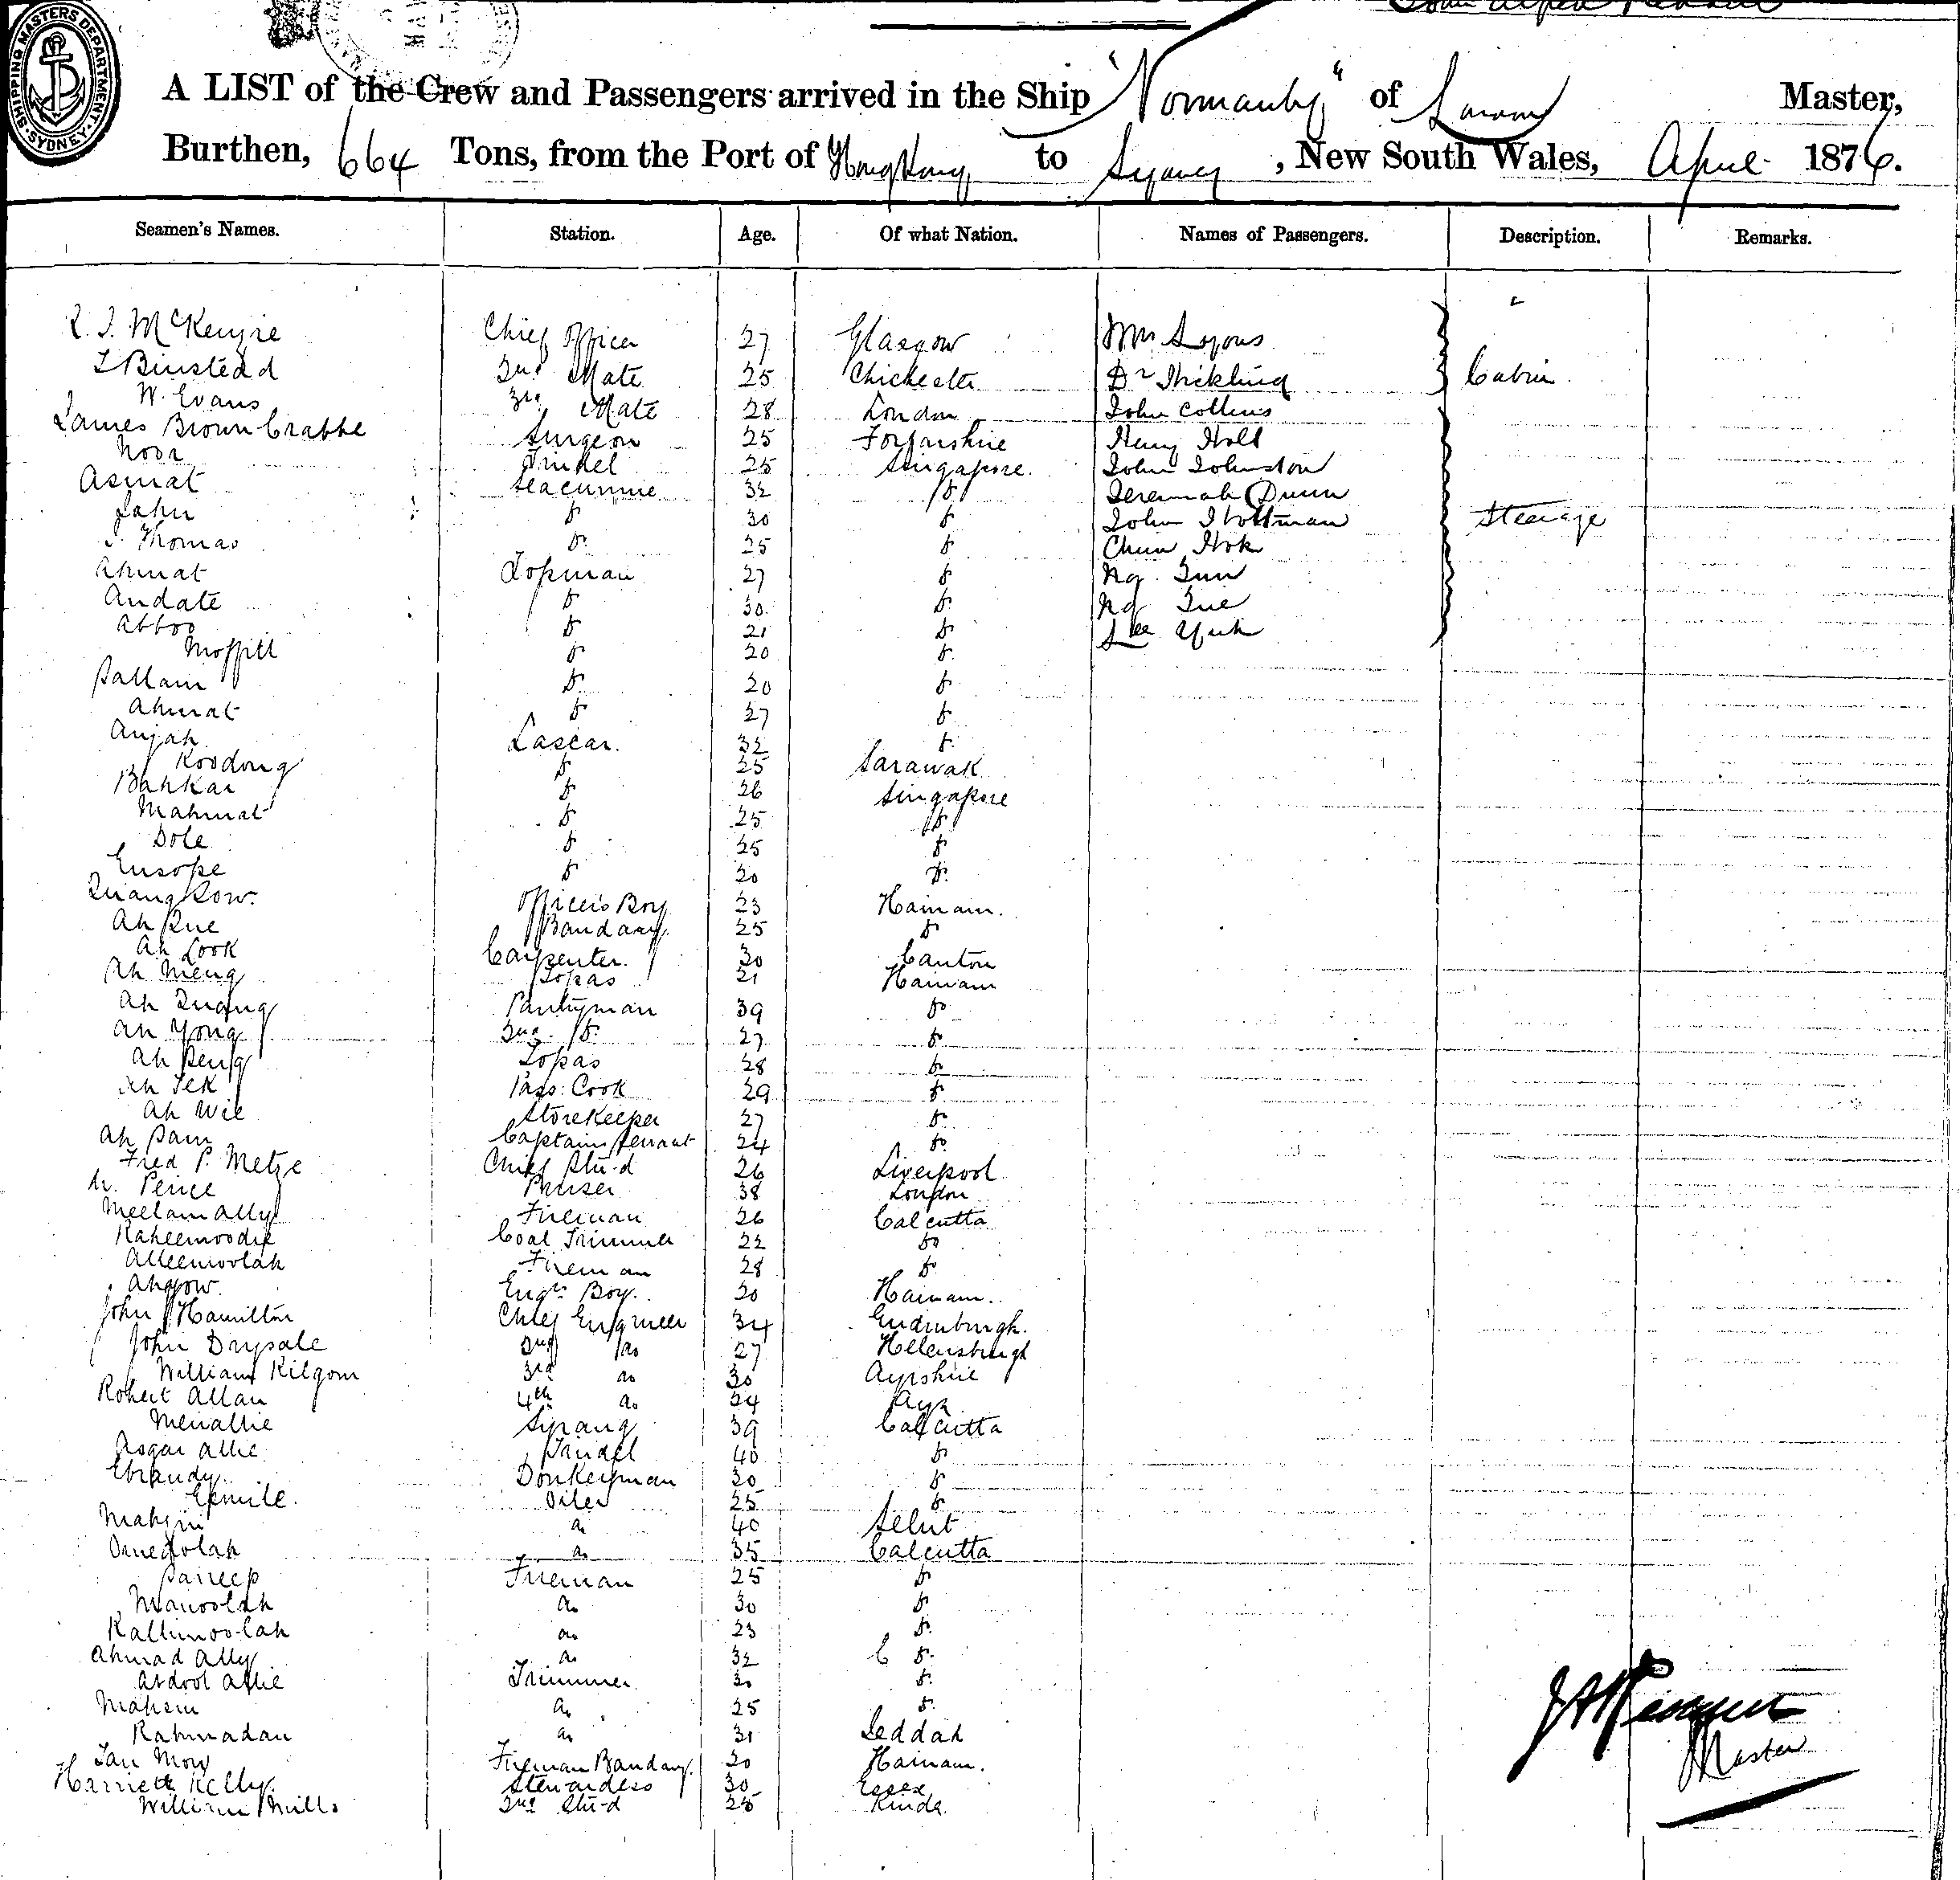 SHIPPING MASTERS DEPARTMENT. SYDNEY
A LIST of the Crew and Passengers arrived in the Ship "Normanby" of Master,
Burthen, 664 Tons, from the Port of Hong Kong to Sydney, New South Wales, April 1876.
Seamen's Names. Station. Age. Of what Nation. Names of Passengers. Description. Remarks.
McKenzie Chief Officer 27 Glasgow Mrs Lyons
Binstead 2nd Mate 25 Chichester Dr Cabin
W. Evans 3rd Mate 28 London John Collins
James Brown Crabbe Surgeon 25 Forfarshire Henry Holt
Noor Tindel 25 Singapore. John Johnston
Asmat Seacunnie 32 Do Jeremiah Dunn
Jahn Do 30 Do John Holtman Steerage
J. Thomas Do 25 Do Chun Hok
Ahmat Topman 27 Do Ng Sun
Andate Do 30 Do Ng Sue
Abboo Do 21 Do Lee Yuk
Do 20 Do
Sallam Do 20 Do
Ahmat Do 27 Do
Anjah Lascar. 32 Do
Koodong Do 25 Sarawak
Bahkar Do 26 Singapore
Mahmat Do 25 Do
Dole Do 25 Do
Eusope Do 20 Do
Quang Sow. Officers Boy 23 Hainam.
Ah Sue Bandary 25 Do
Ah Look Carpenter. 30 Canton
Ah Meng Topas 21 Hainam
Ah Quang Pantryman 39 Do
Ah Yong 2nd Do 27 Do
Ah Seng Topas 28 Do
Ah Sek Pass: Cook 29 Do
Ah Wee Storekeeper 27 Do
Ah Sam Captains Servant 24 Do
Fred P. Metze Chief Stu-d 26 Liverpool
Purser 38 London
Meelam Ally Fireman 26 Calcutta
Raheemoodie Coal Trimmer 22 Do
Alleemoolah Fireman 28 Do
Ahgow. Engrs Boy. 20 Hainam.
John Hamilton Chief Engineer 34 Endinburgh.
John Drysale 2nd do 27 Hellensburgh
William Kilgour 3rd do 30 Ayrshire
Robert Allan 4th do 24 Ayr
Menallie Syrang 39 Calcutta
Asgar Allie Tandel 40 Do
Donkeyman 30 Do
Oiler 25 Do
do 40 Selut
do 35 Calcutta
Saireep Fireman 25 Do
Manoolah do 30 Do
Kallimoolah do 23 Do
Ahmad Ally do 32 Do
Abdool Allie Trimmer 30 Do
Mahein do 25 Do
Rahmadan do 31 Jeddah
Tan Mow Fireman Bandary. 20 Hainam.
Harriett Kelly. Stewardess 30 Essex
William Mills 2nd Stu-d 25
Master